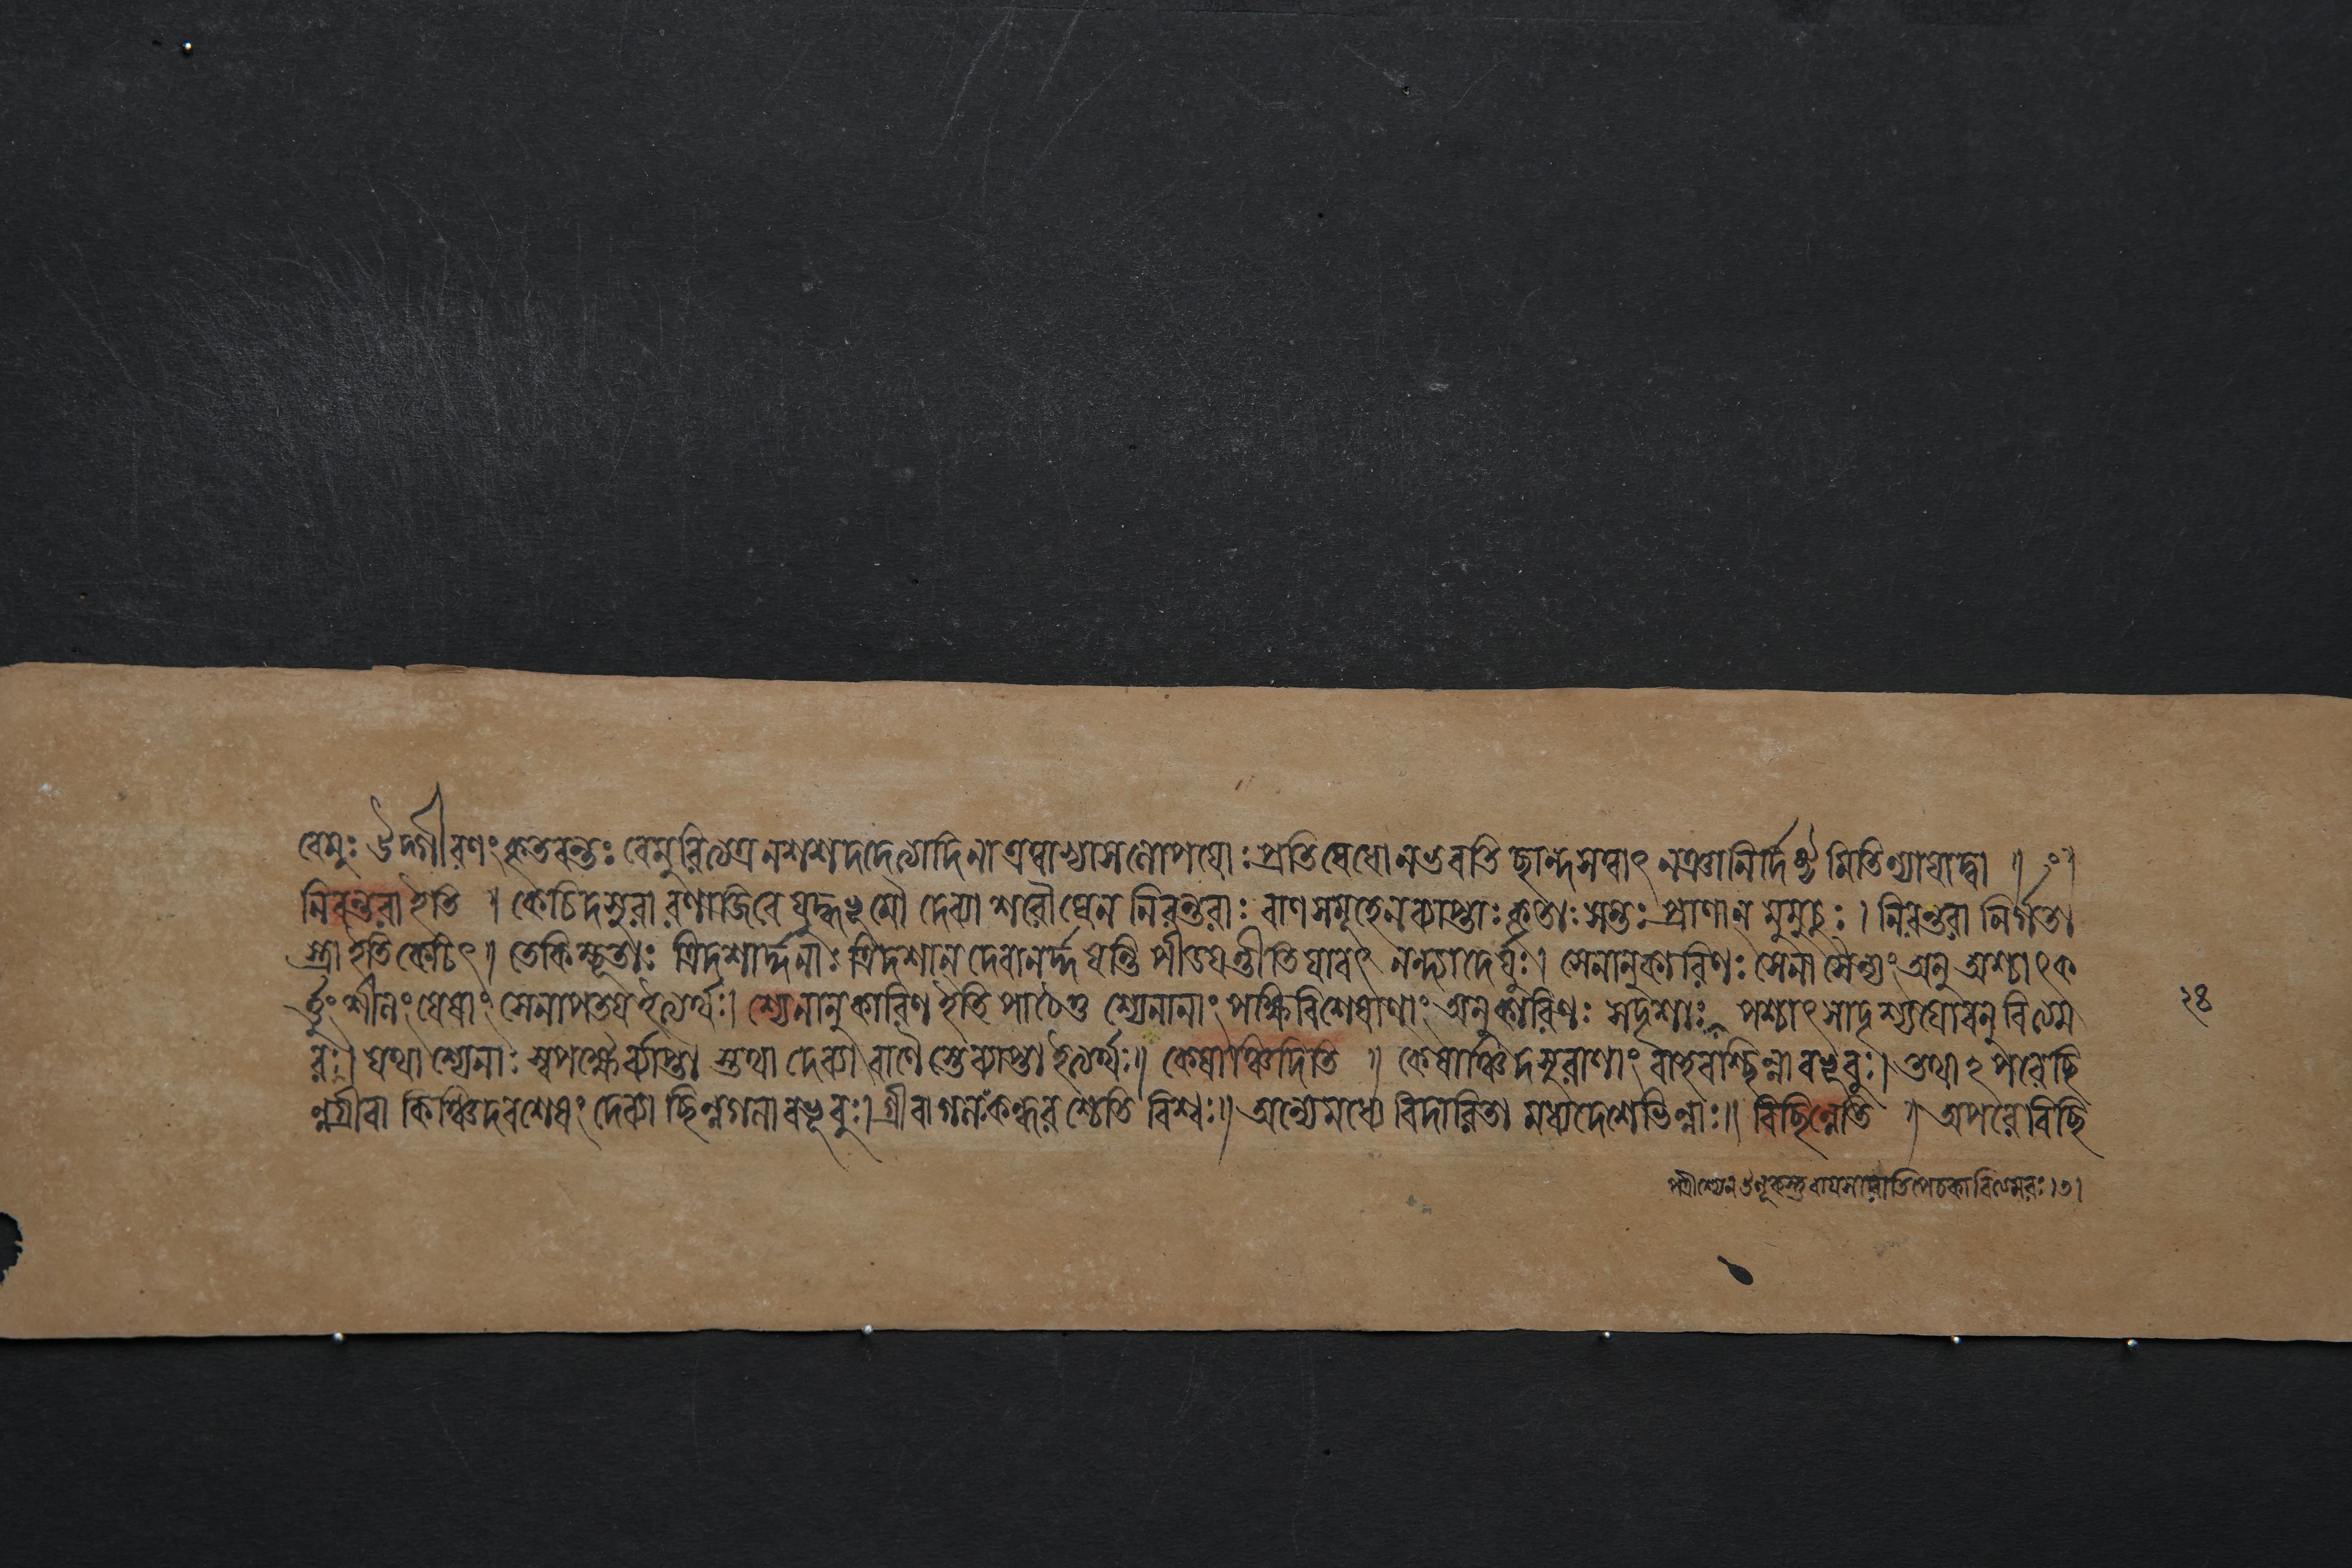 বেমুঃ উদ্গীরণং কৃতবন্তঃ বেমুরিত্যত্র নশশদদেত্যাদিনা এত্বাভ্যাসলোপয়োঃ প্রতিষেধো ন ভবতি ছান্দসত্বাৎ নঞা নির্দিষ্টমিতি ন্যায়াদ্বা ॥ ॥
নিরন্তরা ইতি ॥ কেচিদসুরা রণাজিরে যুদ্ধভূমৌ দেব্যা শরৌঘেন নিরন্তরাঃ বাণসমূহেন ব্যাপ্তাঃ কৃতাঃ সন্তঃ প্রাণান্ মুমুচুঃ । নিরন্তরা নির্গতা
স্ত্রা ইতি কেচিৎ ॥ তে কিম্ভূতাঃ ত্রিদশার্দ্দনাঃ ত্রিদশান্ দেবানর্দ্দয়ন্তি পীডয়ন্তীতি যাবৎ নন্দ্যাদের্যুঃ । সেনানুকারিণঃ সেনা সৈন্যং অনু পশ্চাৎ ক
র্ত্তুং শীলং যেষাং সেনাপতয় ইত্যর্থঃ । শ্যেনানুকারিণ ইতি পাঠে তু শ্যেনানাং পক্ষিবিশেষাণাং অনুকারিণঃ সদৃশাঃ পশ্চাৎ সাদৃশ্যয়োরনু বিত্যম
রঃ । যথা শ্যেনাঃ স্বপক্ষৈর্ব্যাপ্তা স্তথা দেব্যা বাণৈস্তে ব্যাপ্তা ইত্যর্থঃ ॥ কেষাঞ্চিদিতি ॥ কেষাঞ্চিদসুরাণাং বাহবশ্ছিন্না বভূবুঃ । তথাঽপরে ছি
ন্নগ্রীবা কিঞ্চিদবশেষং দেব্যা ছিন্নগলা বভূবুঃ । গ্রীবা গলঃ কন্ধরশ্চেতি বিশ্বঃ ॥ অন্যে মধ্যে বিদারিতা মধ্যদেশে ভিন্নাঃ ॥ বিচ্ছিন্নেতি ॥ অপরে বিচ্ছি
পত্রীশ্যেন
২৪